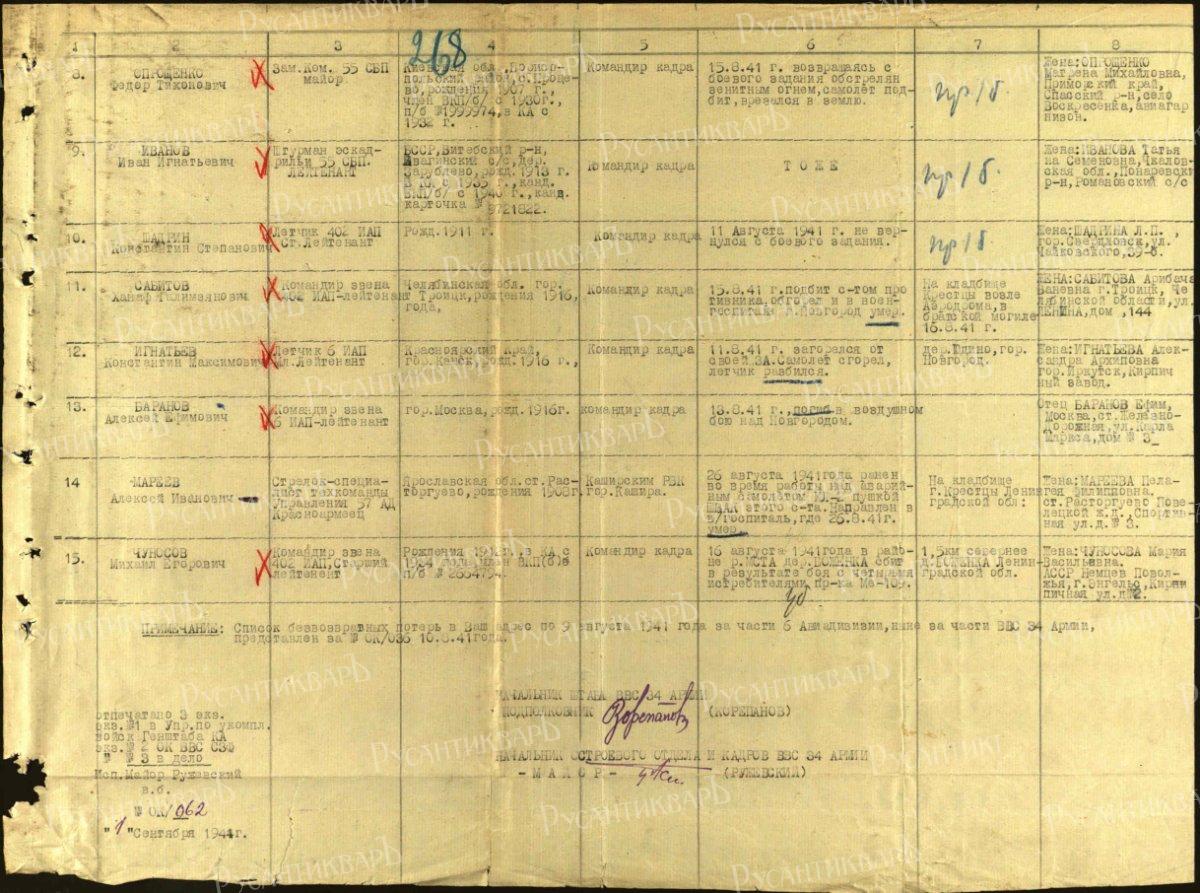 268
1 2 3 4 5 6 7 8
8. ОПРОЩЕНКО
Федор Тихонович
Зам.Ком. 55 СБП
майор
Киевская обл.,Бориспольский район,с.Процево,рождения 1907 г.,
член ВКП/б/ с 1930г.,
п/б №1999974,в КА с
1932 г.
Командир кадра
15.8.41 г. возвращаясь с
боевого задания обстрелян
зенитным огнем,самолёт подбит,врезался в землю.
пр/б.
Жена:ОПРОЩЕНКО
Матрена Михайловна,
Приморский край,
Спасский р-н,село
Воскресенка,авиагарнизон.
9. ИВАНОВ
Иван Игнатьевич
Штурман эскадрильи 55 СБП.
ЛЕЙТЕНАНТ
БССР,Витебский р-н,
с/с,дер.
Зарублено,рожд.1913 г.
в КА с 1935 г.,канд.
ВКП/б/ с 1940 г.,канд.
карточка № 9721822.
Командир кадра
Т О Ж Е
пр/б.
Жена:ИВАНОВА Татьяна Семеновна,Чкаловская обл.,Понаревский
р-н,Романовский с/с
10. ШАДРИН
Константин Степанович
Летчик 402 ИАП
Ст.Лейтенант
Рожд.1911 г.
Командир кадра
11 Августа 1941 г. не вернулся с боевого задания.
пр/б
Жена:ШАДРИНА Л.П. ,
гор.Свердловск,ул.
Чайковского,39-б.
11. САБИТОВ
Ханаф Галимзянович
Командир звена
402 ИАП-лейтенант
Челябинская обл. гор.
Троицк,рождения 1916,
года,
Командир кадра
15.8.41 г.подбит с-том противника,обгорел и в военгоспитале г.Новгород умер.
На кладбище
Крестцы возле
Аэродрома,в
братской могиле
16.8.41 г.
ЖЕНА:САБИТОВА Арибачаганевна г.Троицк, Челябинской области,ул.
ЛЕНИНА,дом ,144
12. ИГНАТЬЕВ
Константин Максимович
Летчик 6 ИАП
Мл.Лейтенант
Красноярский Край,
гор.Канск,рожд.1916 г.,
Командир кадра
11.8.41 г. загорался от
своей ЗА.Самолет сгорел,
летчик разбился.
дер.Юдино,гор.
Новгород.
Жена:ИГНАТЬЕВА Александра Архиповна
гор.Иркутск,Кирпичный завод.
13. БАРАНОВ
Алексей Ефимович
Командир звена
6 ИАП-лейтенант
гор.Москва,рожд.1916г.
командир кадра
13.8.41 г.,погиб в воздушном
бою над Новгородом.
Отец БАРАНОВ Ефим,
Москва,ст.Железно-
Дорожная,ул.Карла
Маркса,дом № 3_
14 МАРЕЕВ
Алексей Иванович
Стрелок-специалист техкоманды
Управления 57 АД
Красноармеец
Ярославская обл.ст.Расторгуево,рождения 1908г.
Каширским РВК
гор.Кашира.
26 августа 1941года ранен
во время работы над аварийным самолетом ИЛ-2 пушкой
ШВАК этого с-та.Направлен в
в/госпиталь,где 26.8.41г.
умер.
На кладбище
г.Крестцы Ленинградской обл:
Жена:МАРЕЕВА Пелагея Филипповна.
ст.Расторгуево Повелецкой ж.д.,Спортивная ул.д.№ 3.
15. ЧУНОСОВ
Михаил Егорович
Командир звена
402 ИАП,Старший
лейтенант
Рождения 1912г.,в КА с
1934 года,член ВКП(б)б
п/б № 2654794.
Командир кадра
16 августа 1941года в районе р.МСТА дер.БОЖЕНКА сбит
в результате боя с четырмя
истребителями пр-ка Ме-109.
уб
1,5км севернее
д.БОЖЕНКА Ленинградской обл.
Жена:ЧУНОСОВА Мария
Васильевна.
АССР Немцев Поволжья,г.Энгельс,Кирпичная ул.д№2.
ПРИМЕЧАНИЕ: Список безвозвратных потерь в Ваш адрес по 9 августа 1941 года за части 6 Авиадивизии,ныне за части ВВС 34 Армии,
представлен за № ОК/036 10.8.41года.
НАЧАЛЬНИК ШТАБА ВВС 34 АРМИИ
ПОДПОЛКОВНИК Корепанов (КОРЕПАНОВ)
НАЧАЛЬНИК ОСТРОЕВОГО ОТДЕЛА И КАДРОВ ВВС 34 АРМИИ
- М А Й О Р - (РУЖЕВСКИЙ)
отпечатано 3 экз.
экз.№1 в Упр.по укомпл.
войск Генштаба КА
экз.№ 2 ОК ВВС СЗФ
" № 3 в дело
Исп.Майор Ружевский
в.б.
№ ОК/062
" 1 "Сентября 1941г.
РУСАНТИКВАРЪ